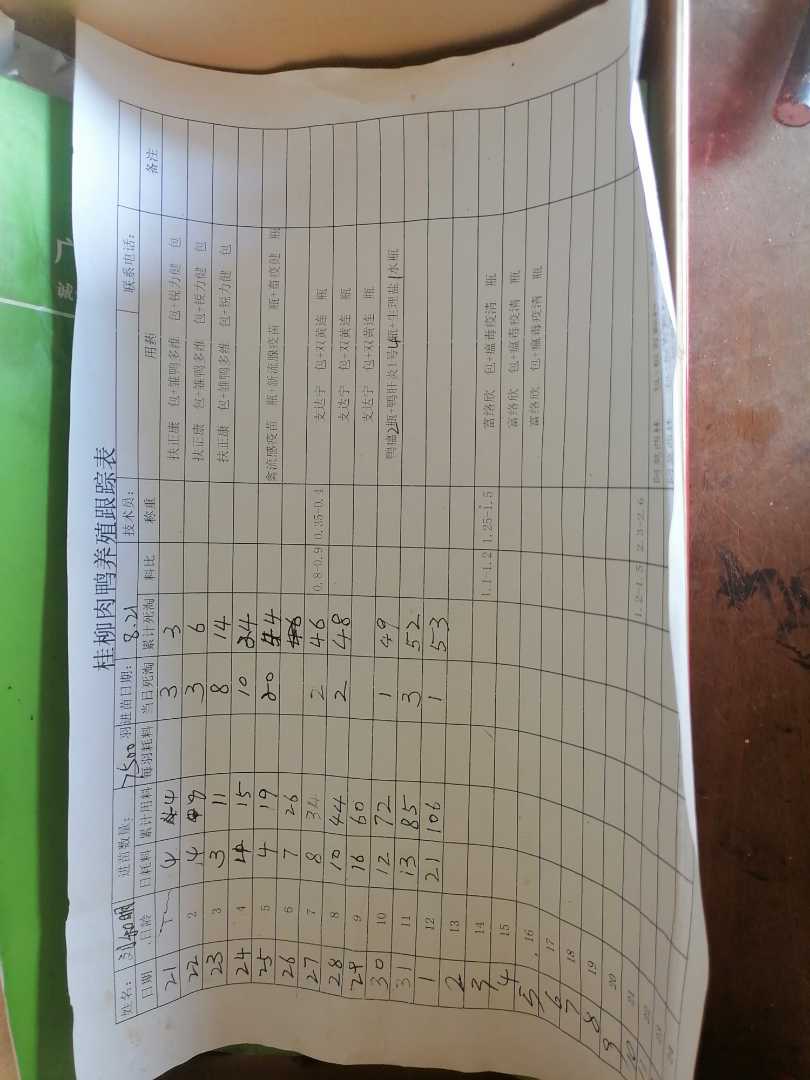 桂柳肉鸭养殖跟踪表
姓名： 进苗数量： 7500 羽 进苗日期： 8.21 技术员： 联系电话：
日期 日龄 日耗料 累计用料 每羽耗料 当日死淘 累计死淘 料比 称重 用药 备注
21 4 4 3 3 扶正康 包+雏鸭多维 包+锐力健 包
22 2 4 8 3 6 扶正康 包+雏鸭多维 包+锐力健 包
23 3 3 11 8 14 扶正康 包+雏鸭多维 包+锐力健 包
24 4 4 15 10 24
25 5 4 19 20 44 禽流感疫苗 瓶+新流腺疫苗 瓶+畜疫健 瓶
26 6 7 26
27 7 8 34 2 46 0.8-0.9 0.35-0.4 支达宁 包+双黄连 瓶
28 8 10 44 2 48 支达宁 包+双黄连 瓶
29 9 16 60 支达宁 包+双黄连 瓶
30 10 12 72 1 49 鸭瘟2瓶+鸭肝炎1号4瓶+生理盐水 瓶
31 11 13 85 3 52
1 12 21 106 1 53
2 13
3 14 1.1-1.2 1.25-1.5 富络欣 包+瘟毒疫清 瓶
4 15 富络欣 包+瘟毒疫清 瓶
5 16 富络欣 包+瘟毒疫清 瓶
6 17
7 18
8 19
9 20
10 21 1.2-1.5 2.3-2.6
22
23
24
广